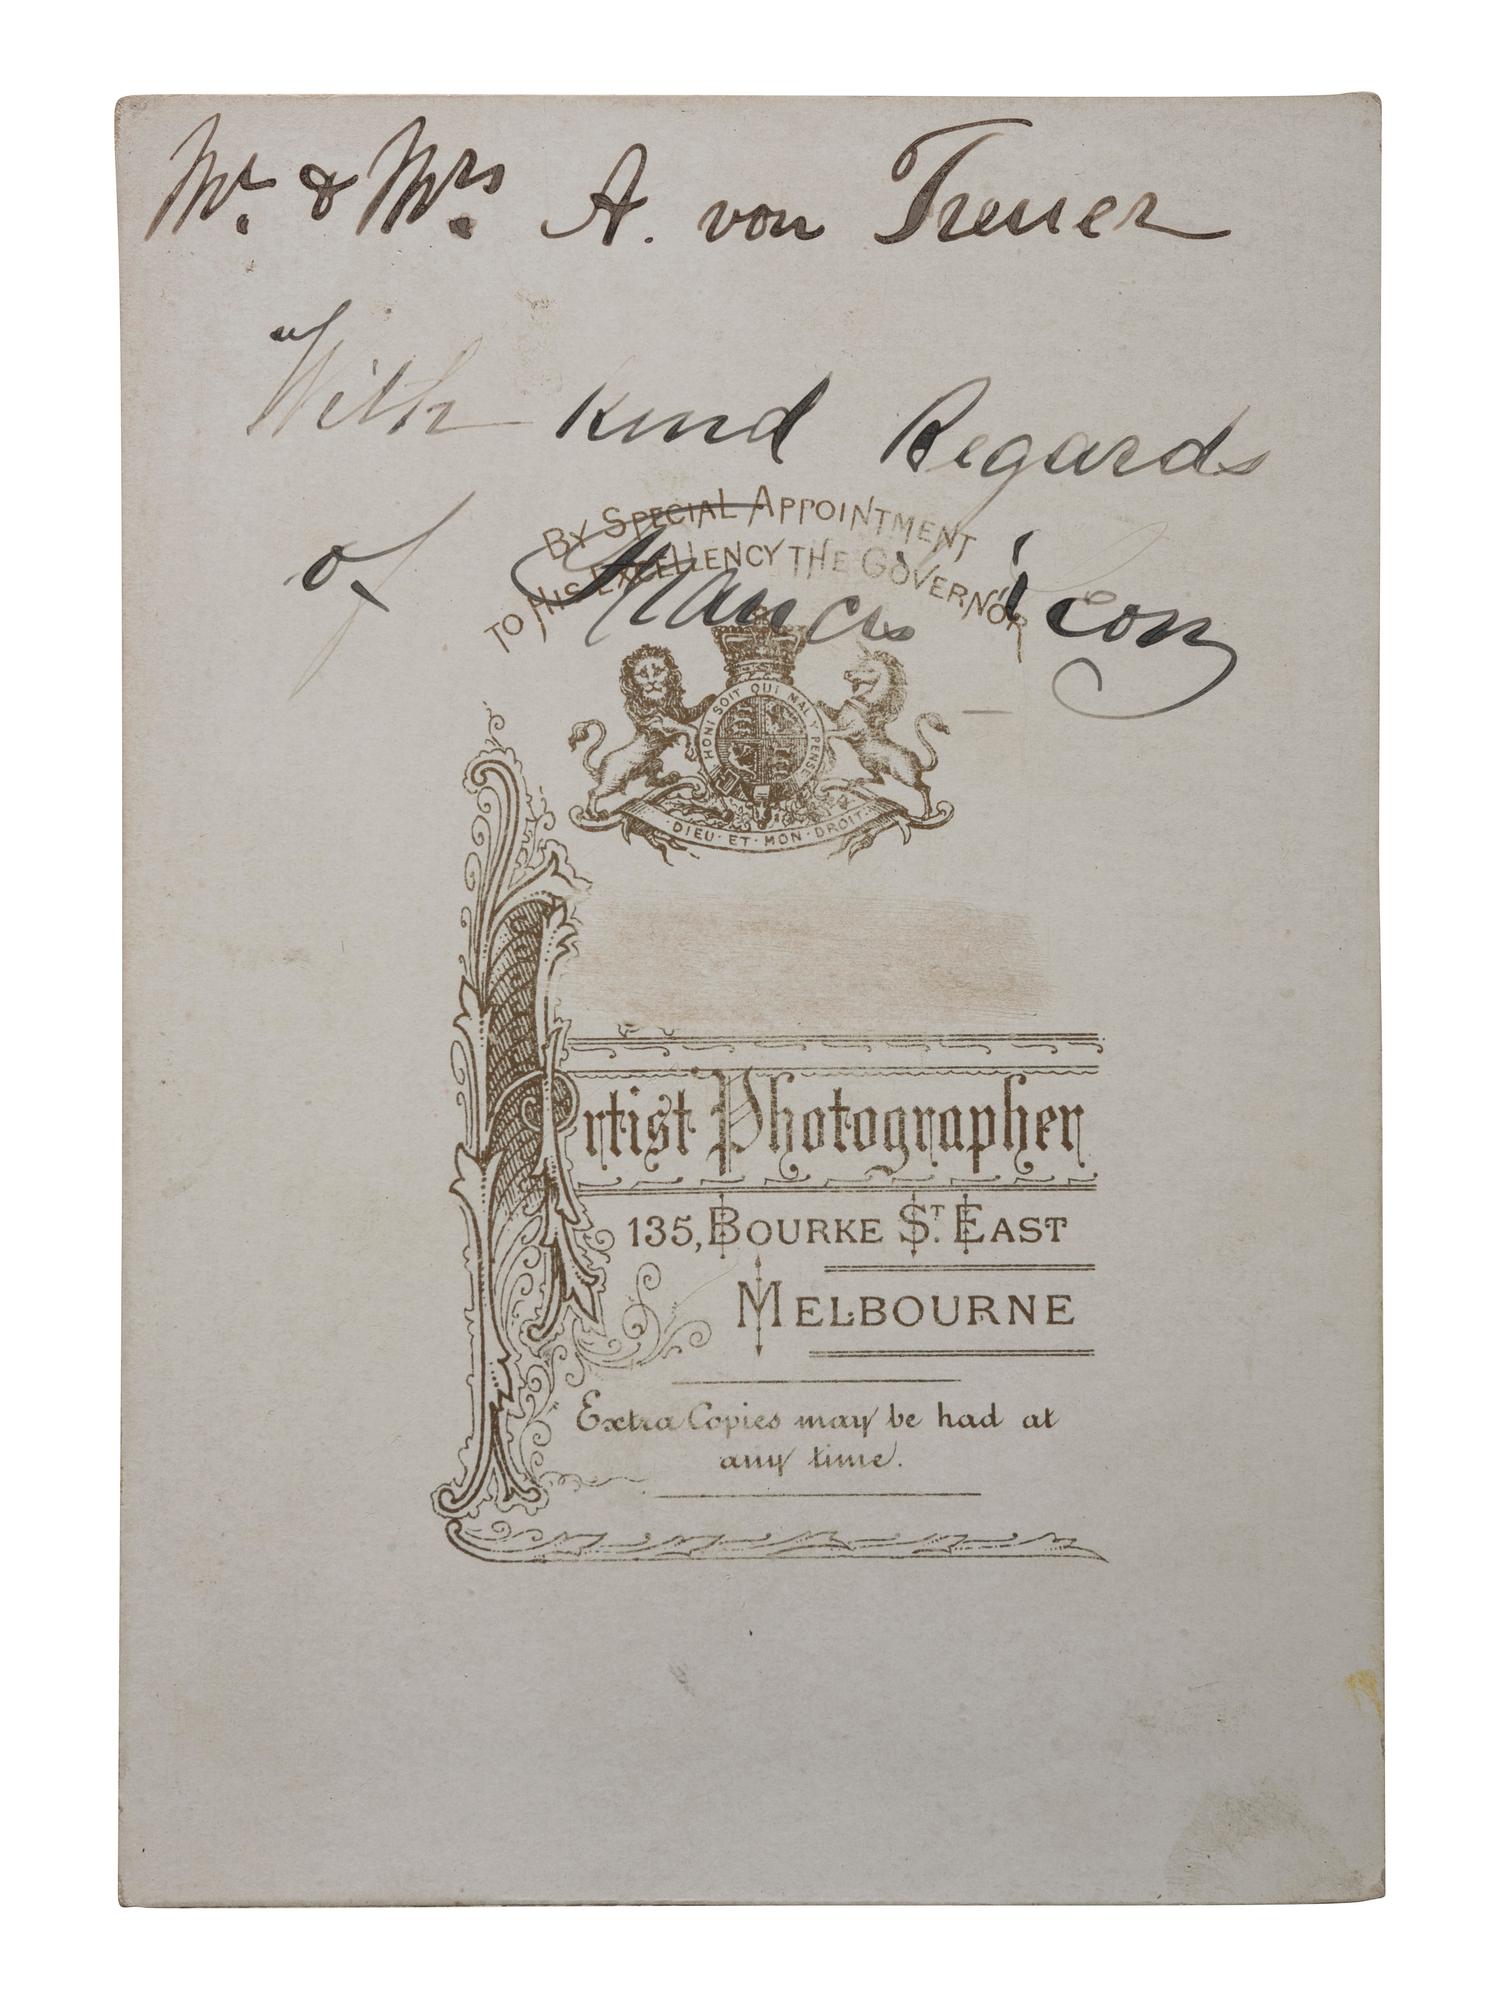 Mr. & Mrs. A. von Treuer
With kind Regards
of Francis Leon
BY SPECIAL APPOINTMENT
TO HIS EXCELLENCY THE GOVERNOR
HONI SOIT QUI MAL Y PENSE
DIEU·ET·MON·DROIT
Artist Photographer
135, BOURKE ST. EAST
MELBOURNE
Extra Copies may be had at
any time.